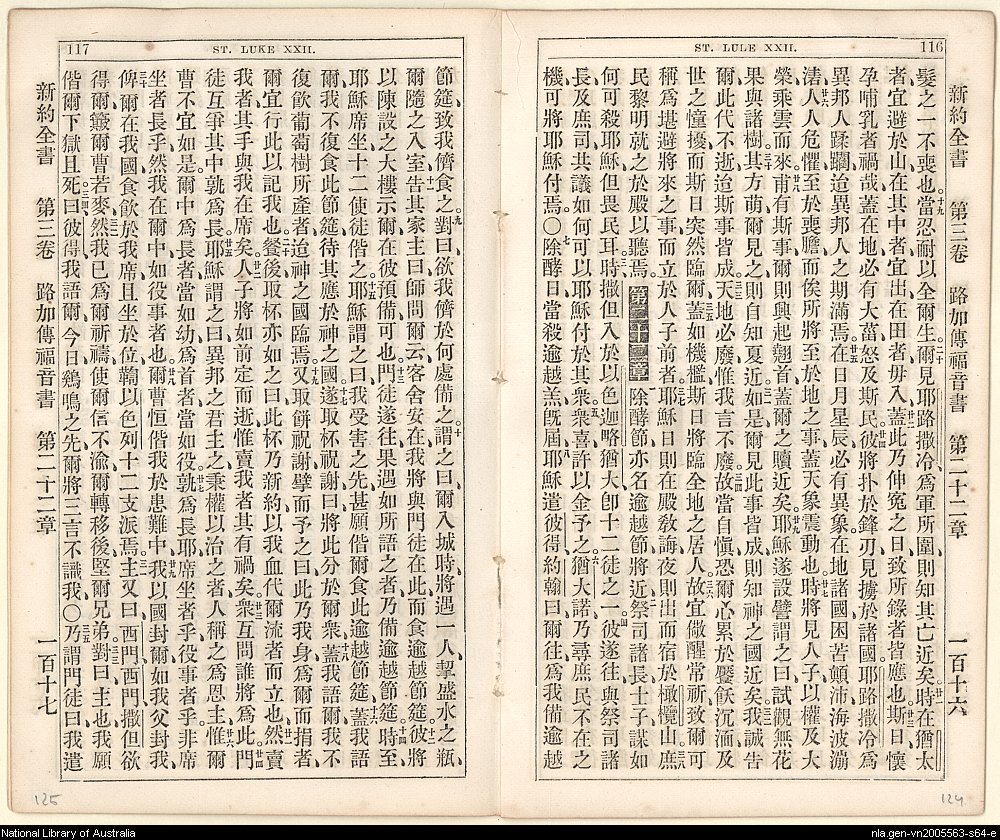 ST. LULE XXII. 116
新約全書 第三卷 路加傳福音書 第二十二章 一百十六
髮之一不喪也當忍耐以全爾生爾見耶路撒冷爲軍所圍則知其亡近矣時在猶太
者宜避於山在其中者宜出在田者毋入蓋此乃伸冤之日致所錄者皆應也斯日懷
孕哺乳者禍哉蓋在地必有大菑怒及斯民彼將扑於鋒刃見擄於諸國耶路撒冷爲
異邦人蹂躪迨異邦人之期滿焉在日月星辰必有異象在地諸國困苦顛沛海波漰
濤人人危懼至於喪膽而俟所將至於地之事蓋天象震動也時將見人子以權及大
榮乘雲而來甫有斯事爾則興起翹首蓋爾之贖近矣耶穌遂設譬謂之曰試觀無花
果與諸樹其方萌爾見之則自知夏近如是爾見此事皆成則知神之國近矣我誠告
爾此代不逝迨斯事皆成天地必廢惟我言不廢故當自愼恐爾心累於饜飫沉湎及
世之憧擾而斯日突然臨爾蓋如機檻斯日將臨全地之居人故宜儆醒常祈致爾可
稱爲堪避將來之事而立於人子前者耶穌日則在殿敎誨夜則出而宿於橄欖山庶
民黎明就之於殿以聽焉 第二十二章 除酵節亦名逾越節將近祭司諸長士子謀如
何可殺耶穌但畏民耳時撒但入於以色迦畧猶大卽十二徒之一彼遂往與祭司諸
長及庶司共議如何可以耶穌付於其衆衆喜許以金予之猶大諾乃尋庶民不在之
機可將耶穌付焉〇除酵日當殺逾越羔旣屆耶穌遣彼得約翰曰爾往爲我備逾越
117 ST. LUKE XXII.
節筵致我儕食之對曰欲我儕於何處備之謂之曰爾入城時將遇一人挈盛水之瓶
爾隨之入室告其家主曰師問爾云客舍安在我將與門徒在此而食逾越節筵彼將
以陳設之大樓示爾在彼預備可也門徒遂往果遇如所語之者乃備逾越節筵時至
耶穌席坐十二使徒偕之耶穌謂之曰我受害之先甚願偕爾食此逾越節筵蓋我語
爾我不復食此節筵待其應於神之國遂取杯祝謝曰將此分於爾衆蓋我語爾我不
復飮葡萄樹所產者迨神之國臨焉又取餅祝謝擘而予之曰此乃我身爲爾而捐者
爾宜行此以記我也餐後取杯亦如之曰此杯乃新約以我血代爾流者而立也然賣
我者其手與我在席矣人子將如前定而逝惟賣我者其有禍矣衆互問誰將爲此門
徒互爭其中孰爲長耶穌謂之曰異邦之君主之乘權以治之者人稱之爲恩主惟爾
曹不宜如是爾中爲長者當如幼爲首者當如役孰爲長耶席坐者乎役事者乎非席
坐者長乎然我在爾中如役事者也爾曹恒偕我於患難中我以國封爾如我父封我
俾爾在我國食飮於我席且坐於位鞫以色列十二支派焉主又曰西門西門撒但欲
得爾簸爾曹若麥然我已爲爾祈禱使爾信不渝爾轉移後堅爾兄弟對曰主也我願
偕爾下獄且死曰彼得我語爾今日鷄鳴之先爾將三言不識我〇乃謂門徒曰我遣
新約全書 第三卷 路加傳福音書 第二十二章 一百十七
125
124
National Library of Australia
nla.gen-vn2005563-s64-e